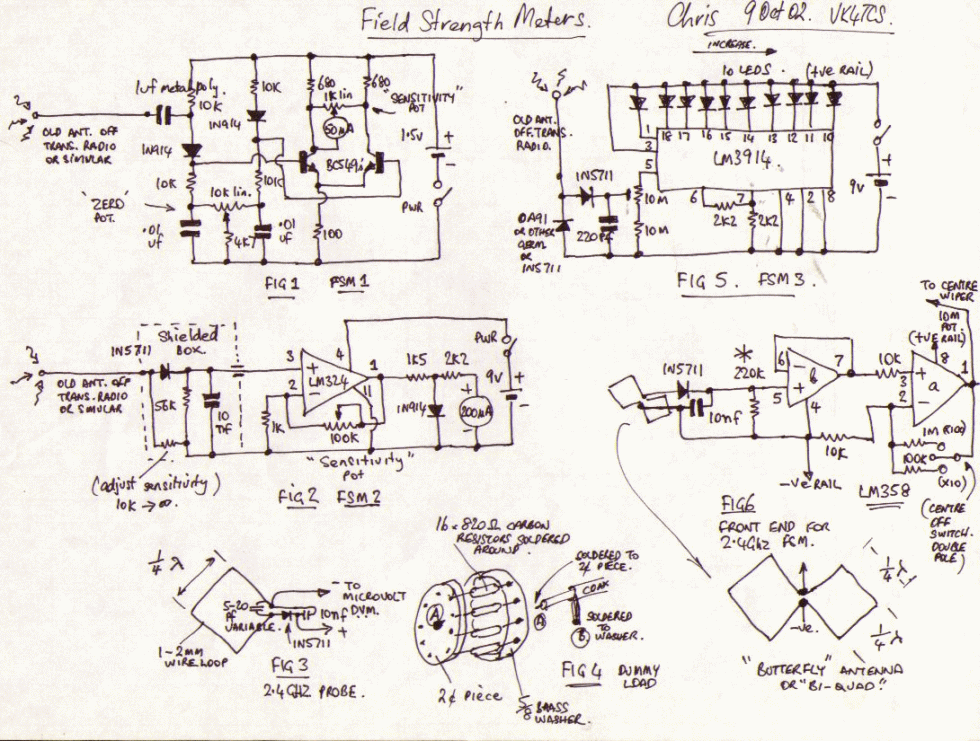 Field Strength Meters.
Chris 9 Oct 02. VK4TCS.
1uf metal poly.
10K
10K
680
680
1K lin
"SENSITIVITY"
POT
50uA
1N914
OLD ANT. OFF
TRANS. RADIO
OR SIMULAR
1N914
BC549's
1.5v
+
-
10K
10K
10K lin.
'ZERO'
POT.
PWR
.01
uf
4K7
.01
uf
100
FIG 1 FSM 1
INCREASE.
10 LEDS. (+ve RAIL)
OLD ANT.
OFF TRANS.
RADIO.
1
18 17 16 15 14 13 12 11 10
3
LM3914
5
1N5711
10M
6 7 4 2 8
9v
+
-
2K2
2K2
OA91
OR OTHER
GERM
OR
1N5711
220Pf
10M
FIG 5. FSM 3.
Shielded
BOX.
1N5711
OLD ANT. OFF
TRANS. RADIO
OR SIMULAR
56K
10
nf
3
+
2
-
LM324
4
1
11
1K
100K
"Sensitivity"
Pot
1K5 2K2
1N914
200uA
PWR
9v
+
-
(adjust sensitivity)
10K → ∞.
Fig 2 FSM 2
TO CENTRE
WIPER
10M
POT
(+VE RAIL)
1N5711
*
220K
10nf
6
-
+
5
b
7
4
10K
3
+
-
2
a
8
1
10K
1M (X100)
100K
(X10)
-VE RAIL
LM358
(CENTRE
OFF
SWITCH.
DOUBLE
POLE)
FIG 6
FRONT END FOR
2.4Ghz FSM.
1/4 λ
5-20
pf
VARIABLE.
- TO
MICROVOLT
DVM.
10nf
+
1N5711
1-2mm
WIRE LOOP
FIG 3
2.4GHZ PROBE.
16 x 820Ω CARBON
RESISTORS SOLDERED
AROUND.
A
SOLDERED TO
2¢ PIECE.
COAX
A
SOLDERED
TO
WASHER.
B
2¢ PIECE
5/8 BRASS
WASHER.
FIG 4 DUMMY
LOAD
1/4 λ
-ve.
1/4 λ
"BUTTERFLY" ANTENNA
OR "BI-QUAD".